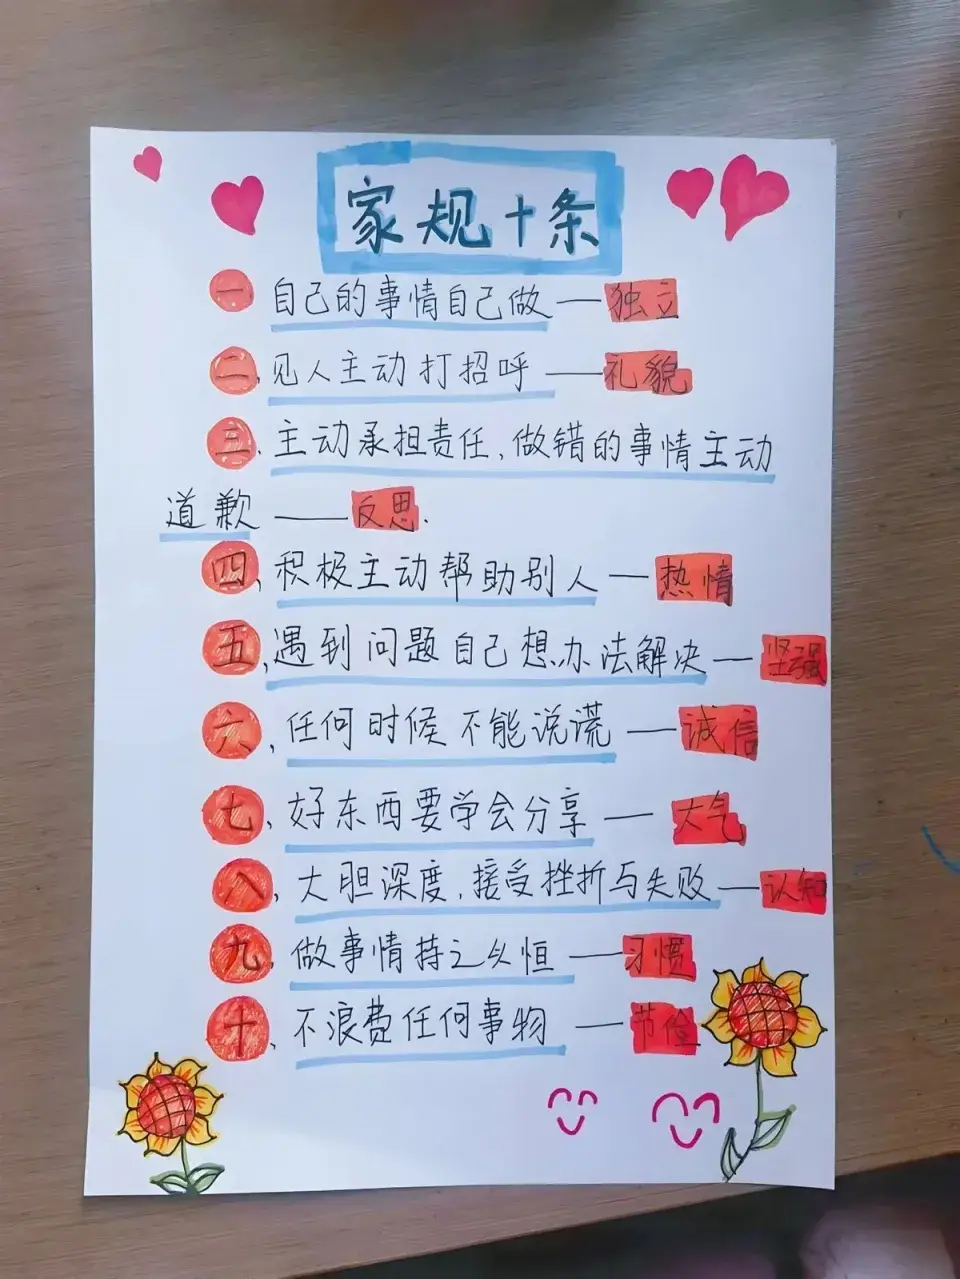 家规十条
一 自己的事情自己做 — 独立
二、见人主动打招呼 —— 礼貌
三、主动承担责任,做错的事情主动
道歉 —— 反思.
四、积极主动帮助别人 — 热情
五、遇到问题自己想办法解决 — 坚强
六、任何时候不能说谎 — 诚信
七、好东西要学会分享 — 大气
八、大胆深度,接受挫折与失败 — 认知
九、做事情持之以恒 — 习惯
十、不浪费任何事物 — 节俭